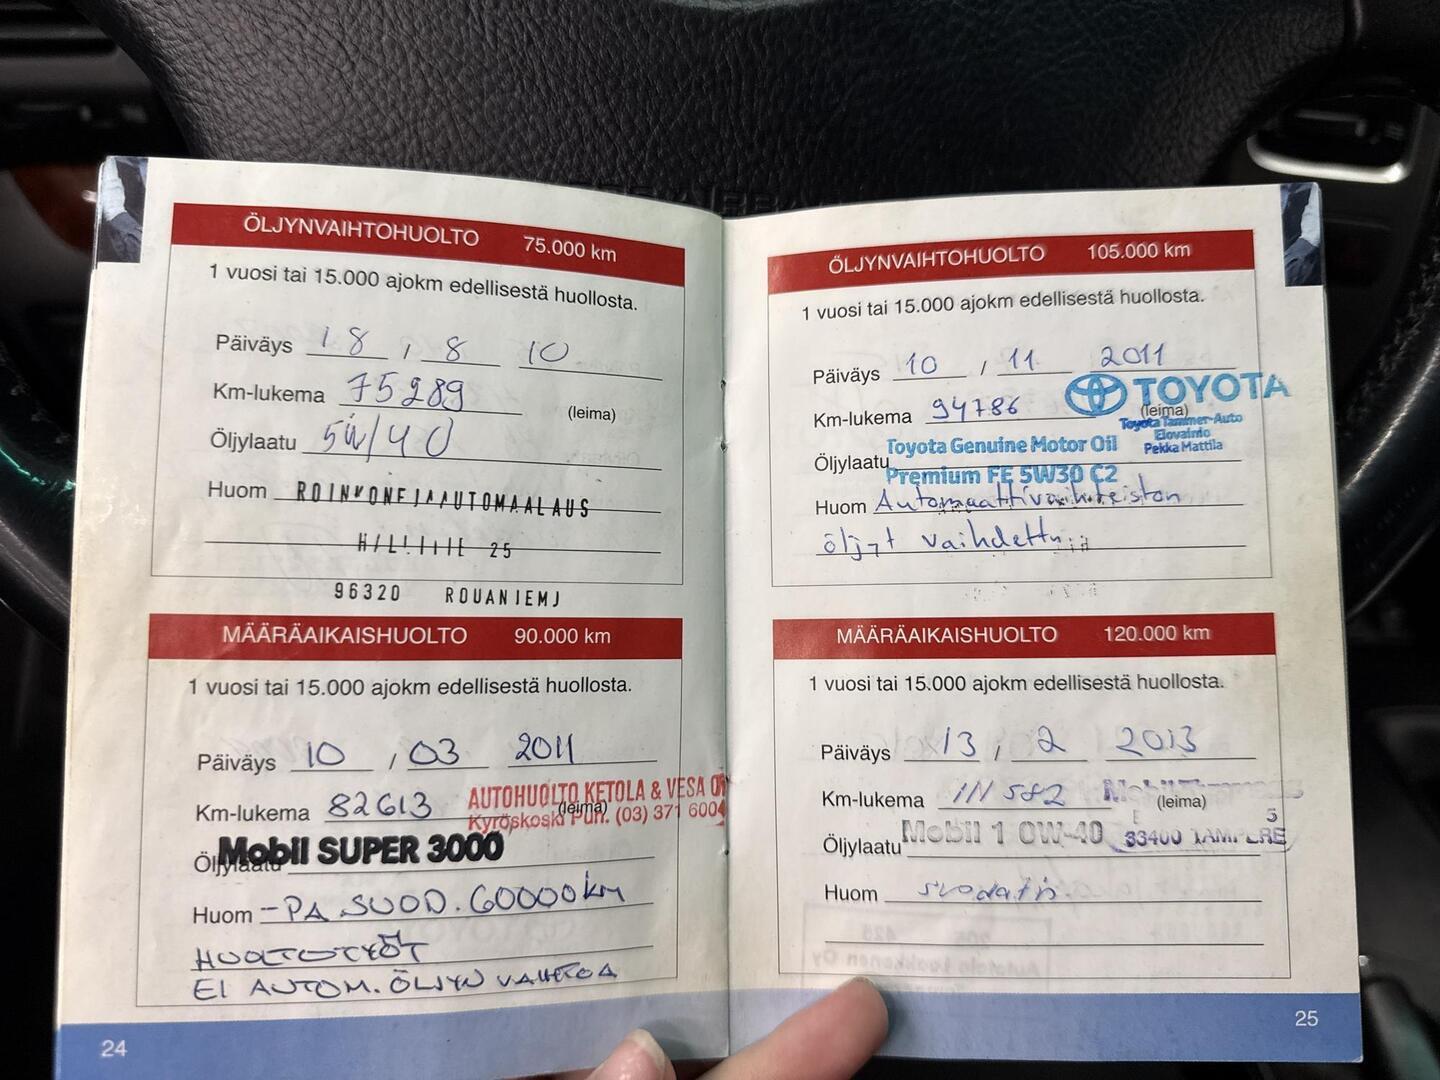 ÖLJYNVAIHTOHUOLTO 75.000 km
1 vuosi tai 15.000 ajokm edellisestä huollosta.
Päiväys 18 , 8 10
Km-lukema 75289 (leima)
Öljylaatu 5W/40
Huom ROINKONEJAAUTOMAALAUS
25
96320 ROUANIEMJ
MÄÄRÄAIKAISHUOLTO 90.000 km
1 vuosi tai 15.000 ajokm edellisestä huollosta.
Päiväys 10 , 03 2011
AUTOHUOLTO KETOLA & VESA
Km-lukema 82613 (leima)
Kyröskoski Puh. (03) 371 6004
Öljylaatu Mobil SUPER 3000
Huom -PA SUOD. 60000km
HUOLTOTYÖT
EI AUTOM. ÖLJYN VAIHTOA
24
ÖLJYNVAIHTOHUOLTO 105.000 km
1 vuosi tai 15.000 ajokm edellisestä huollosta.
Päiväys 10 , 11 2011
TOYOTA
Km-lukema 94786 (leima)
Toyota Tammer-Auto
Elovainio
Pekka Mattila
Toyota Genuine Motor Oil
Öljylaatu
Premium FE 5W30 C2
Huom Automaattivaihteiston
öljyt vaihdettu
MÄÄRÄAIKAISHUOLTO 120.000 km
1 vuosi tai 15.000 ajokm edellisestä huollosta.
Päiväys 13 , 2 2013
Km-lukema 111582 (leima)
Öljylaatu Mobil 1 0W-40
33400 TAMPERE
Huom suodatin
25